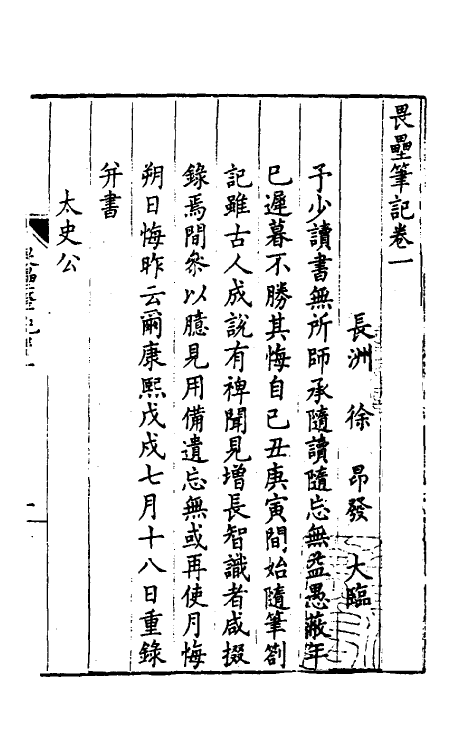 畏壘筆記卷一
長洲 徐 昂發 大臨
予少讀書無所師承隨讀隨忘無益愚蔽年
已遲暮不勝其悔自己丑庚寅間始隨筆劄
記雖古人成說有裨聞見增長智識者咸掇
錄焉間叅以臆見用備遺忘無或再使月悔
朔日悔昨云爾康熙戊戌七月十八日重錄
幷書
太史公